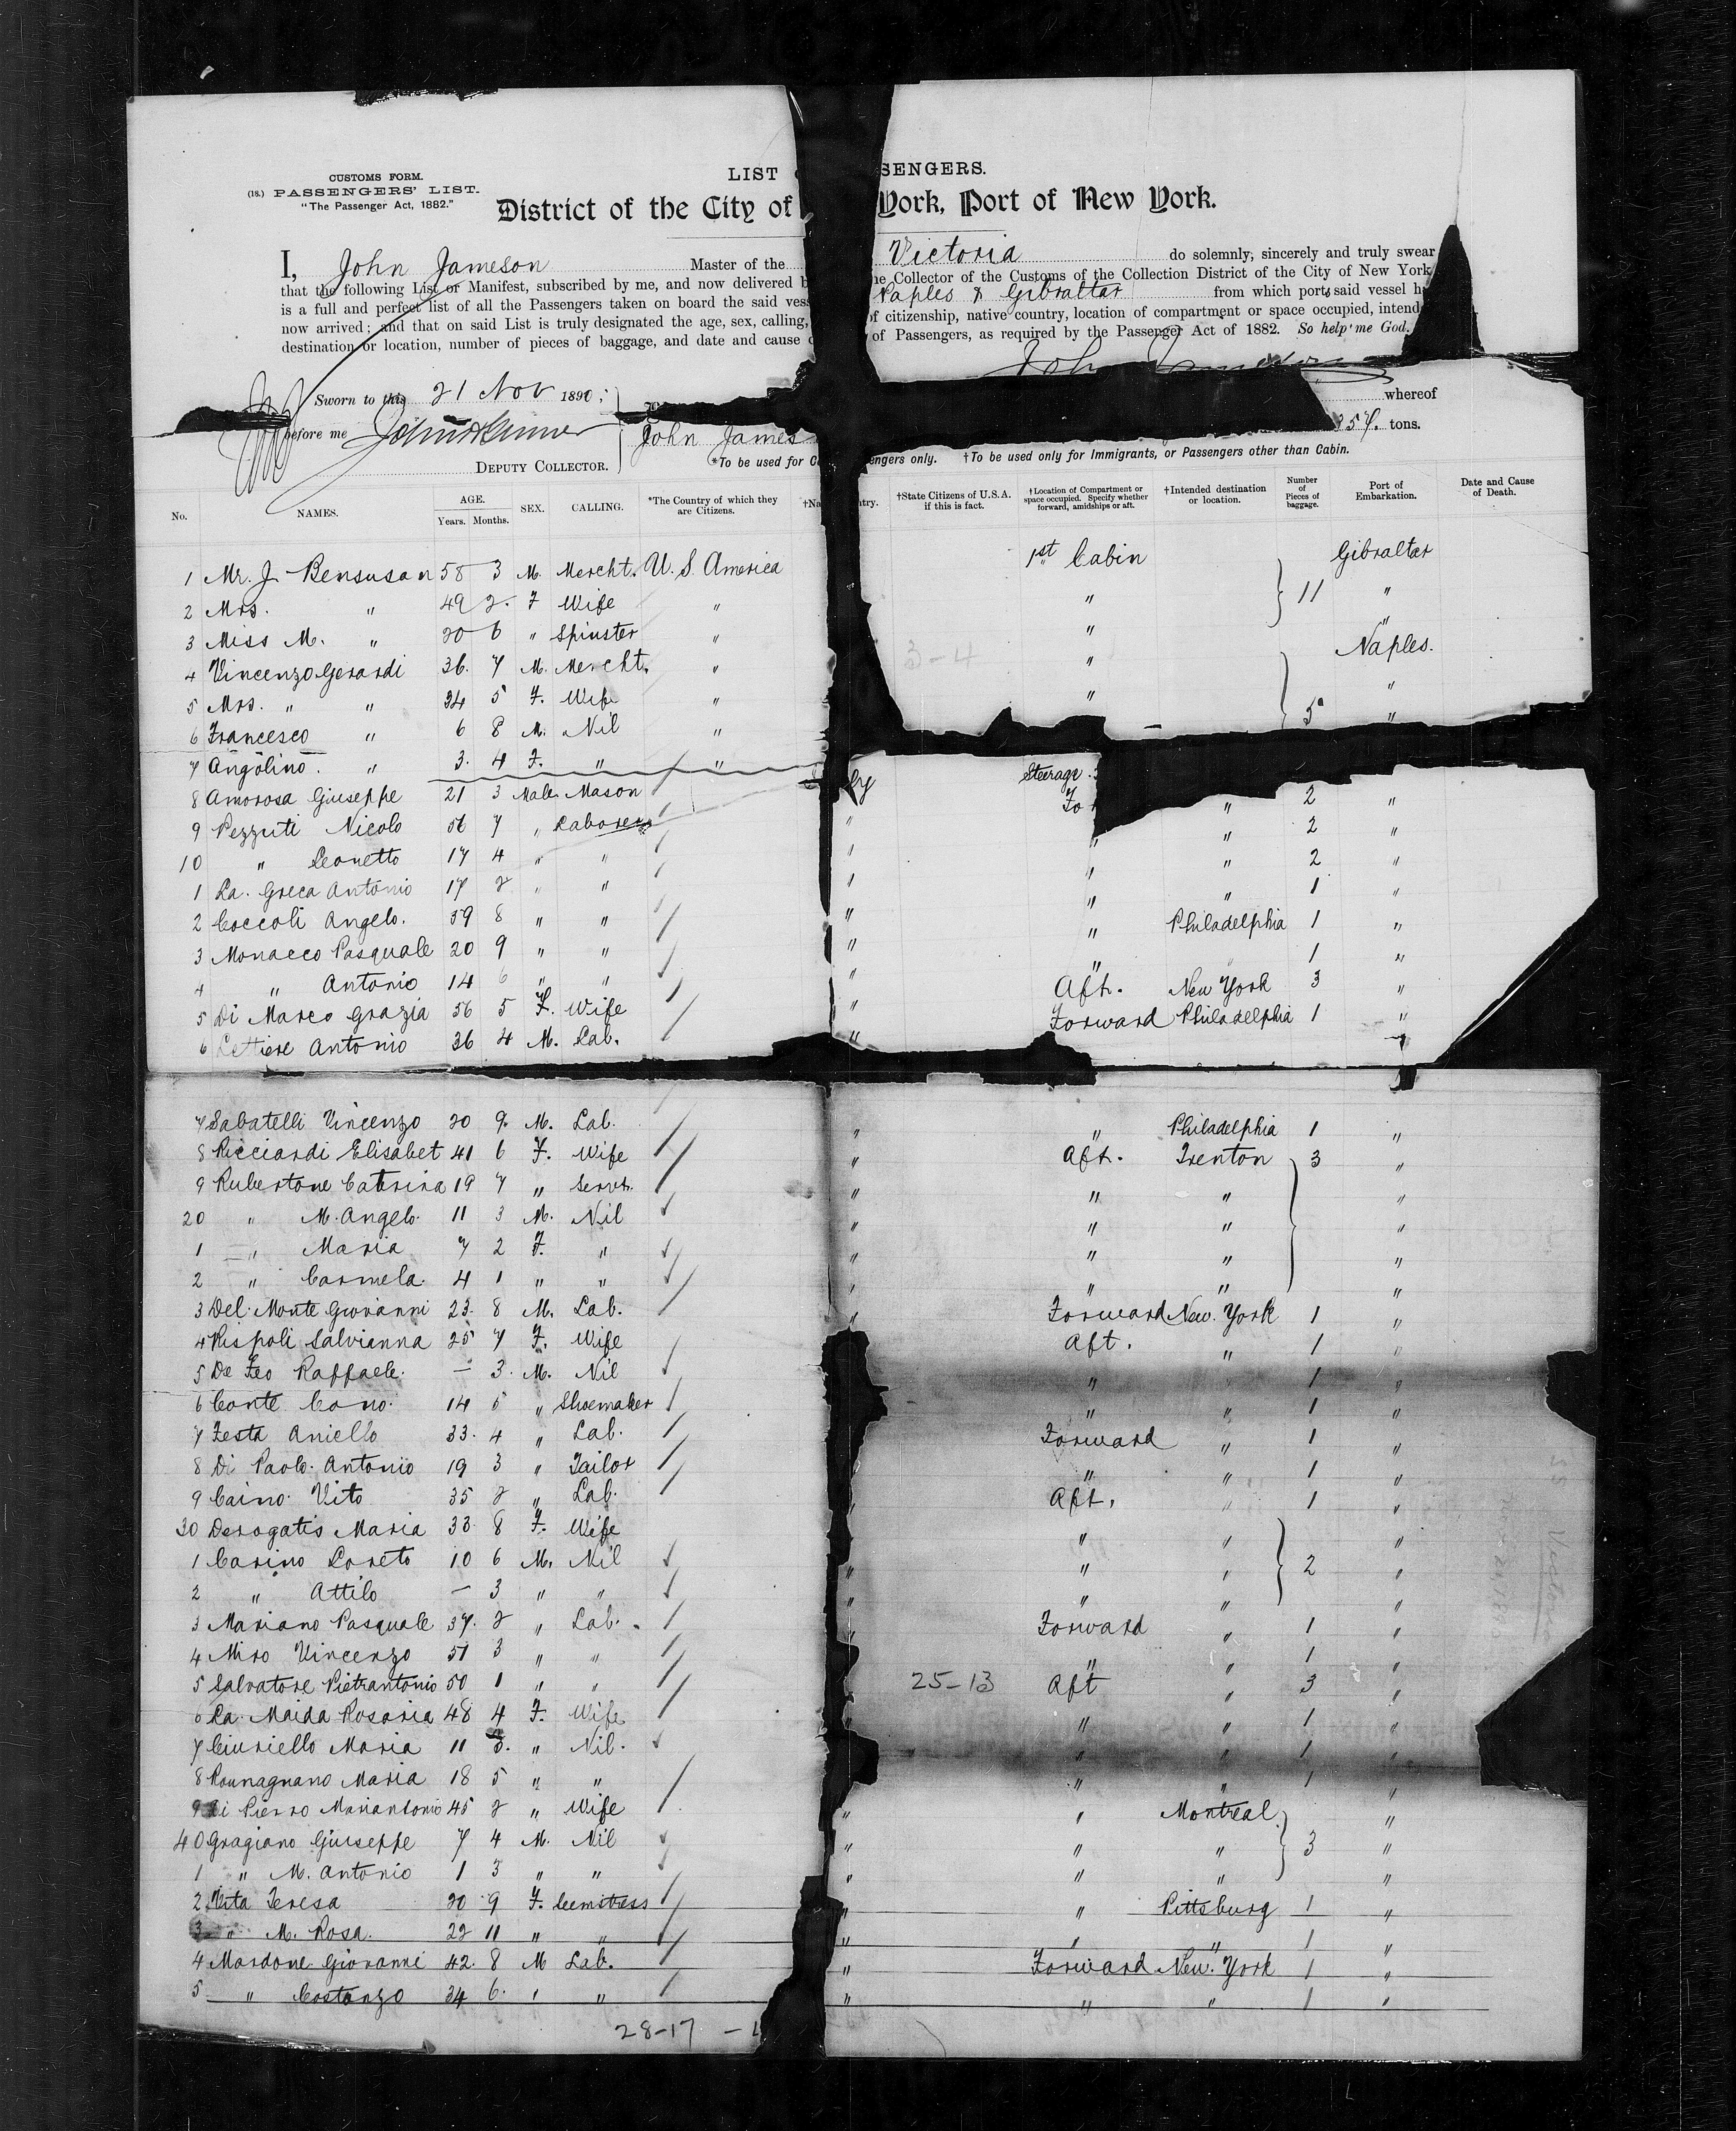 CUSTOMS FORM.
(18.) PASSENGERS' LIST.
"The Passenger Act, 1882."
LIST SENGERS.
District of the City of York, Port of New York.
I, John Jameson Master of the Victoria do solemnly, sincerely and truly swear
that the following List or Manifest, subscribed by me, and now delivered the Collector of the Customs of the Collection District of the City of New York
is a full and perfect list of all the Passengers taken on board the said Naples & Gibraltar from which ports said vessel
now arrived; and that on said List is truly designated the age, sex, calling, of citizenship, native country, location of compartment or space occupied, intend
destination or location, number of pieces of baggage, and date and cause of Passengers, as required by the Passenger Act of 1882. So help me God.
Sworn to this 21 Nov 1890; whereof
before me John James 357. tons.
DEPUTY COLLECTOR.
*To be used for engers only. †To be used only for Immigrants, or Passengers other than Cabin.
No. NAMES. AGE. Years. Months. SEX. CALLING. *The Country of which they are Citizens. †Na try. †State Citizens of U.S.A. if this is fact. †Location of Compartment or space occupied. Specify whether forward, amidships or aft. †Intended destination or location. Number of Pieces of baggage. Port of Embarkation. Date and Cause of Death.
1 Mr. J. Bensusan 58 3 M. Mercht. U. S. America 1st Cabin Gibraltar
2 Mrs. " 49 2. F Wife " " } 11 "
3 Miss M. " 20 6 " Spinster " " "
4 Vincenzo Gerardi 36. 7 M. Mercht. " 3-4 " Naples.
5 Mrs. " " 34 5 F. Wife " " "
6 Francesco " 6 8 M. Nil " 5 "
7 Angolino. " 3. 4 F. " "
8 Amorosa Giuseppe 21 3 Male Mason ly Steerage " 2 "
9 Pezzuti Nicolo 56 7 " Laborer " " 2 "
10 " Leonetto 17 4 " " " " " 2 "
1 La. Greca Antonio 17 2 " " " " " 1 "
2 Coccoli Angelo. 59 8 " " " " Philadelphia 1 "
3 Monacco Pasquale 20 9 " " " " " 1 "
4 " Antonio 14 6 " " " Aft. New York 3 "
5 Di Marco Grazia 56 5 F. Wife " Forward Philadelphia 1 "
6 Lettiere Antonio 36 4 M. Lab. "
7 Sabatelli Vincenzo 20 9. M. Lab. " " Philadelphia 1 "
8 Ricciardi Elisabet 41 6 F. Wife " Aft. Trenton 3 "
9 Rubertone Catrina 19 7 " Servt. " " " "
20 " M. Angelo. 11 3 M. Nil " " " "
1 " Maria 7 2 F. " " " " "
2 " Carmela. 4 1 " " " " " "
3 Del. Monte Giovanni 23. 8 M. Lab. " Forward New. York 1 "
4 Rispoli Salvianna 25 7 F. Wife Aft. " 1 "
5 De Feo Raffaele. — 3. M. Nil " " 1 "
6 Conte Cono. 14 5 " Shoemaker " " 1 "
7 Testa Aniello 33. 4 " Lab. Forward " 1 "
8 Di Paolo. Antonio 19 3 " Tailor " " 1 "
9 Caino. Vito 35 2 " Lab. Aft. " 1 "
30 Derogatis Maria 33 8 F. Wife " " "
1 Carino Loreto 10 6 M. Nil " " " } 2 "
2 " Attilo — 3 " " " " " "
3 Mariano Pasquale 37. 2 " Lab. " Forward " 1 "
4 Miro Vincenzo 51 3 " " " " " 1 "
5 Salvatore Pietrantonio 50 1 " " 25-13 Aft " 3 "
6 La. Maida Rosaria 48 4 F. Wife " " " 1 "
7 Ciuriello Maria 11 3. " Nil. " " 1 "
8 Romagnano Maria 18 5 " " " " 1 "
9 Di Pierro Mariantonio 45 2 " Wife " " Montreal "
40 Gragiano Giuseppe 7 4 M. Nil " " " } 3 "
1 " M. Antonio 1 3 " " " " " "
2 Vita Teresa 20 9 F. Seemstress " " Pittsburg 1 "
3 " M. Rosa. 22 11 " " " " " 1 "
4 Mardone Giovanni 42. 8 M Lab. " Forward New. York 1 "
5 " Costanzo 34 6. " " " " " 1 "
28-17